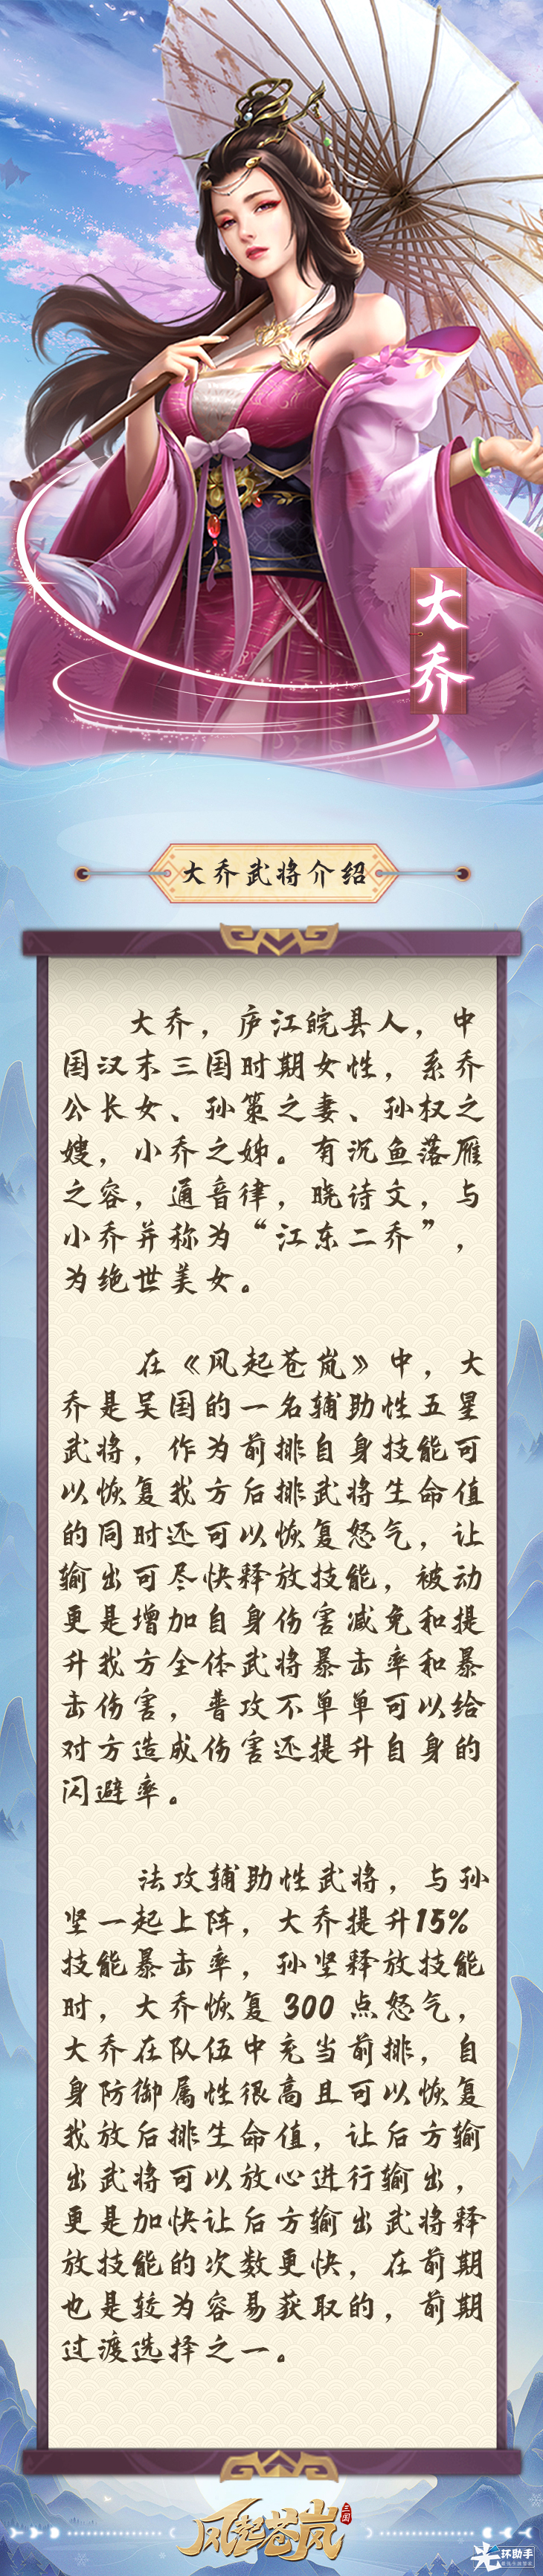 大乔
大乔武将介绍
大乔，庐江皖县人，中
国汉末三国时期女性，系乔
公长女、孙策之妻、孙权之
嫂，小乔之姊。有沉鱼落雁
之容，通音律，晓诗文，与
小乔并称为“江东二乔”，
为绝世美女。
在《风起苍岚》中，大
乔是吴国的一名辅助性五星
武将，作为前排自身技能可
以恢复我方后排武将生命值
的同时还可以恢复怒气，让
输出可尽快释放技能，被动
更是增加自身伤害减免和提
升我方全体武将暴击率和暴
击伤害，普攻不单单可以给
对方造成伤害还提升自身的
闪避率。
法攻辅助性武将，与孙
坚一起上阵，大乔提升15%
技能暴击率，孙坚释放技能
时，大乔恢复 300 点怒气，
大乔在队伍中充当前排，自
身防御属性很高且可以恢复
我放后排生命值，让后方输
出武将可以放心进行输出，
更是加快让后方输出武将释
放技能的次数更快，在前期
也是较为容易获取的，前期
过渡选择之一。
风起苍岚
三国
光环助手